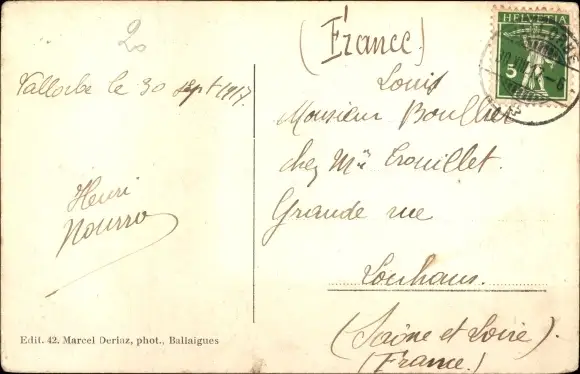 20
(France)
HELVETIA
5
Vallorbe le 30 sept 1917
Louis
Monsieur Boulliet
chez Mr Trouillet.
Grande rue
Louhans.
(Saône et Loire)
(France.)
Henri
Nourro
Edit. 42. Marcel Deriaz, phot., Ballaigues